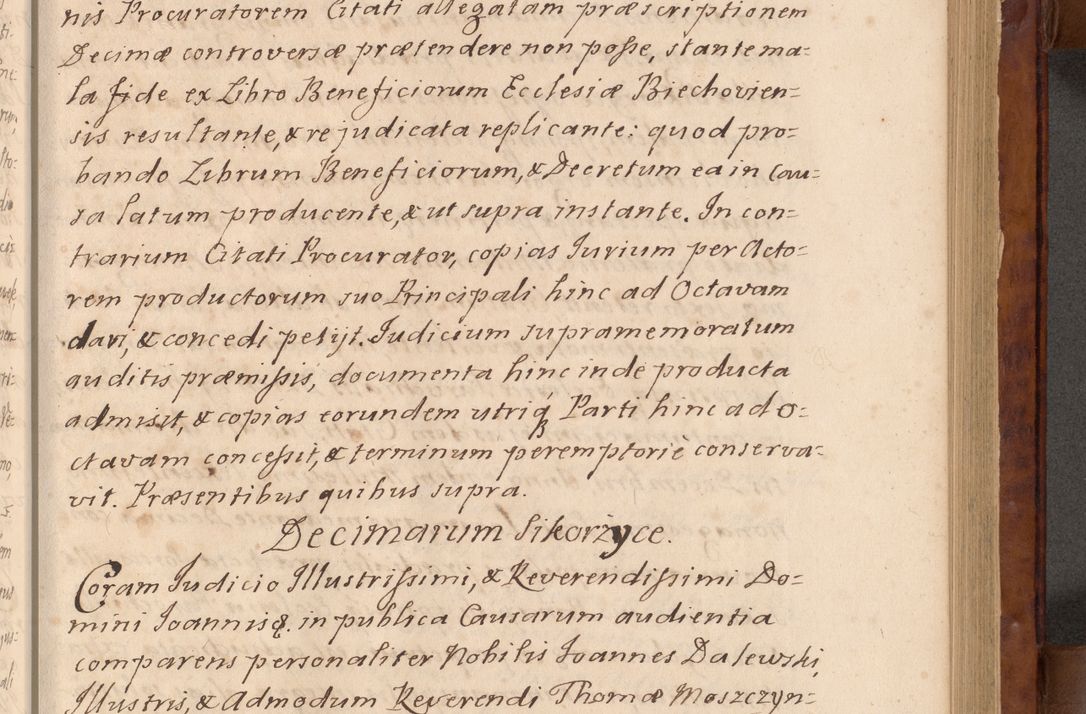 nis Procuratorem Citati allegatam præscriptionem
Decimæ controversæ prætendere non posse, stante ma-
la fide ex Libro Beneficiorum Ecclesiæ Biechovien=
sis resultante, & re judicata replicante: quod pro=
bando Librum Beneficiorum, & Decretum ea in cau=
sa latum producente, & ut supra instante. In con=
trarium Citati Procurator, copias Iurium per Acto=
rem productorum suo Principali hinc ad Octavam
dari, & concedi petijt. Iudicium supramemoratum
auditis præmissis, documenta hinc inde producta
admisit, & copias eorundem utriq́ Parti hinc ad o=
ctavam concessit, & terminum peremptorie conserva=
vit. Præsentibus quibus supra.
Decimarum Sikorżyce.
Coram Iudicio Illustrissimi, & Reverendissimi Do=
mini Ioannis &. in publica Causarum audientia
comparens personaliter Nobilis Ioannes Dalewski,
Illustris, & Admodum Reverendi Thomæ Moszczyn=